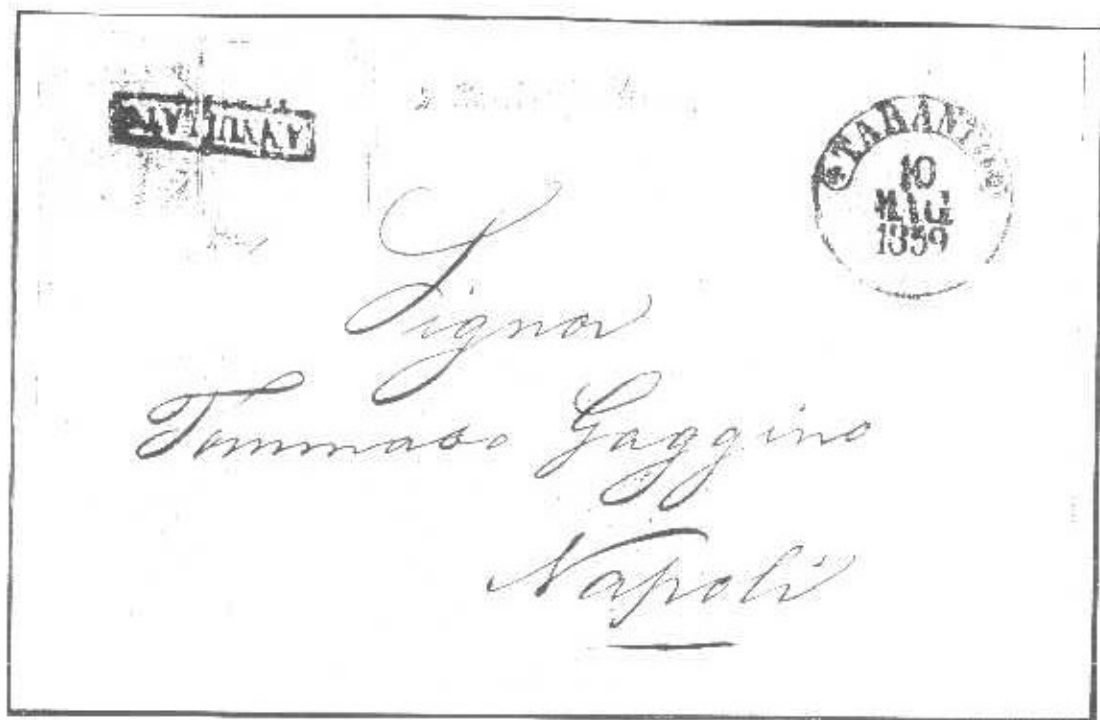 ANNULLATO
TARANTO
10
MAG
1859
Signor
Tommaso Gaggino
Napoli